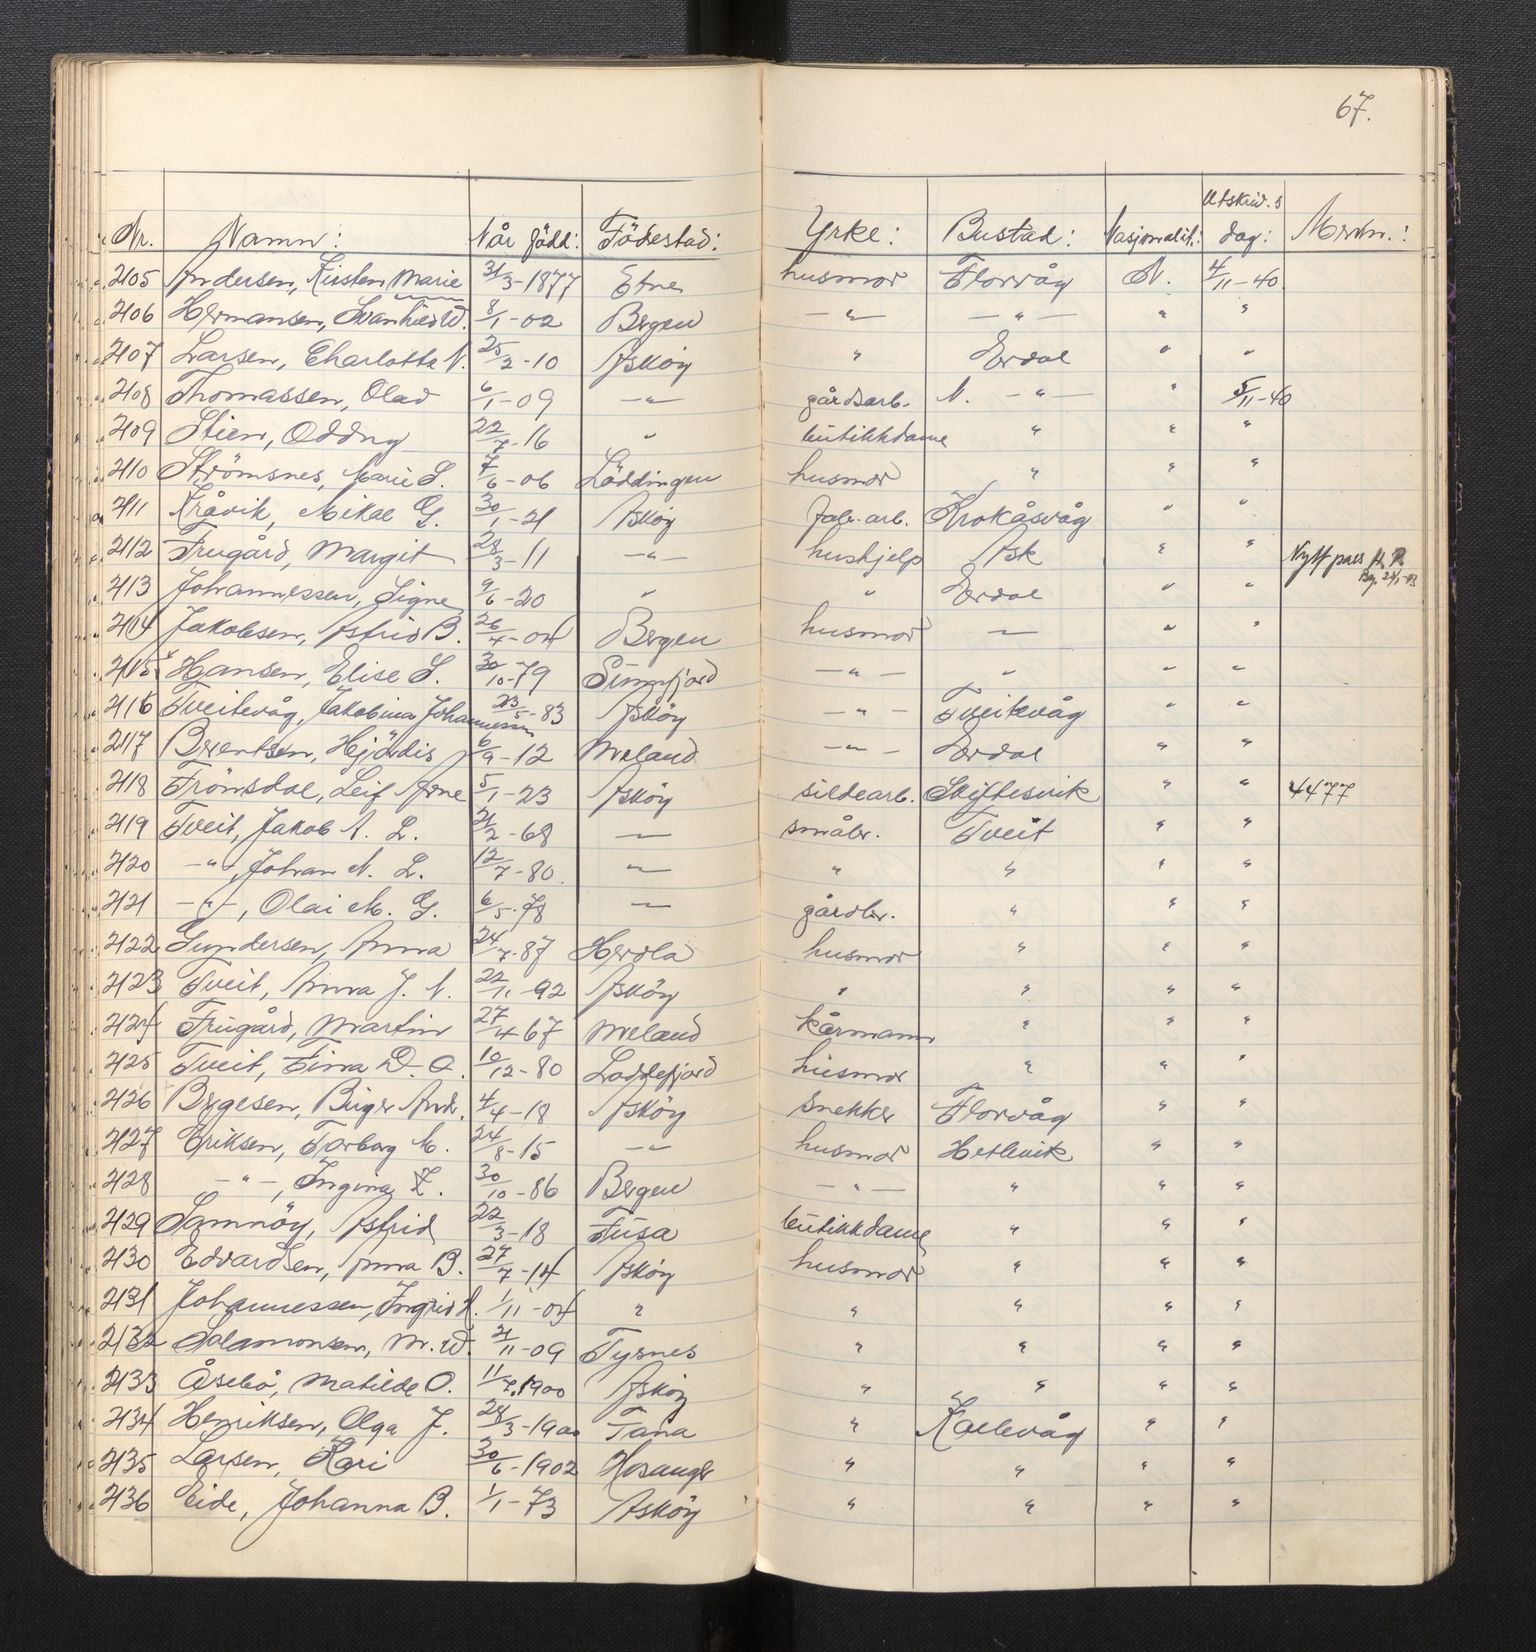 67.
Nr. Namn: Når född: Födestad: Yrke: Bustad: Nasjonalit.: Utskriv.s dag: Merkn.:
2105 Andersen, Kirsten Marie 31/3-1877 Etne husmor Florvåg N. 4/11-40
2106 Hermansen, Svanhild W. 8/1-02 Bergen —"— —"— " "
2107 Larsen, Charlotte N. 25/2-10 Asköy " Erdal " "
2108 Thomassen, Olav 6/1-09 —"— gårdsarb. N. —"— " 5/11-40
2109 Stien, Oddny 22/7-16 " butikkdame " " "
2110 Strömsnes, Marie S. 7/6-06 Löddingen husmor " " "
2111 Kråvik, Mikal G. 30/1-21 Asköy fab. arb. Krokåsvåg " "
2112 Frugård, Margit 28/3-11 —"— hushjelp Ask " " Nytt pass
2113 Johannessen, Signe 9/6-20 " " Erdal " "
2114 Jakobsen, Astrid B. 26/4-04 Bergen husmor — " "
2115 Hansen, Elise S. 30/10-79 Sunnfjord —"— " " "
2116 Tveitevåg, Jakobina Johannessen 23/5-83 Asköy —"— Tveitevåg " "
2117 Berentsen, Hjördis 6/9-12 Meland —"— Erdal " "
2118 Frömsdal, Leif Arne 5/1-23 Asköy sildearb. Skiftesvik " " 4477
2119 Tveit, Jakob A. L. 21/2-68 — småbr. Tveit " "
2120 —"—, Johan N. L. 12/7-80. — " " " "
2121 —"—, Olai M. G. 6/5-78 — gårdbr. " " "
2122 Gundersen, Anna 24/7-87 Herdla husmor " " "
2123 Tveit, Anna J. N. 22/11-92 Asköy " " " "
2124 Frugård, Martin 27/4 67 Meland kårmann " " "
2125 Tveit, Fina D. O. 10/12-80 Loddefjord husmor " " "
2126 Børgesen, Birger Andr. 4/4-18 Asköy snekker Florvåg " "
2127 Eriksen, Torborg M. 24/8-15 —"— husmor Hetlevik " "
2128 —"—, Ingina Z. 30/10-86 Bergen —"— " " "
2129 Samnöy, Astrid 22/3-18 Fusa butikkdame " " "
2130 Edvardsen, Anna B. 27/7-14 Asköy husmor " " "
2131 Johannessen, Ingrid H. 1/11-04 " " " " "
2132 Salamonsen, M. W. 21/11-09 Tysnes " " " "
2133 Åsebö, Matilde O. 11/7.1900 Asköy " " " "
2134 Henriksen, Olga J. 28/3-1900 Tana " Kallevåg " "
2135 Larsen, Kari 30/6-1902 Hosanger " " " "
2136 Eide, Johanna B. 1/1-73 Asköy " " " "